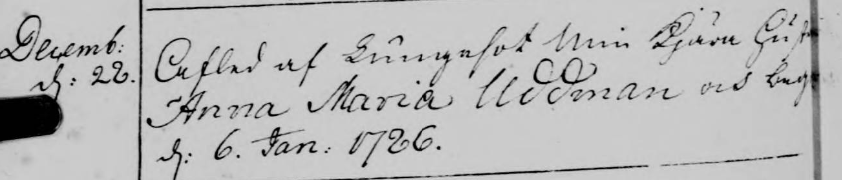 Decemb:
d: 22.
Afled af Lungesot Min Kjära Hust
Anna Maria Uddman och beg
d: 6. Jan: 1726.